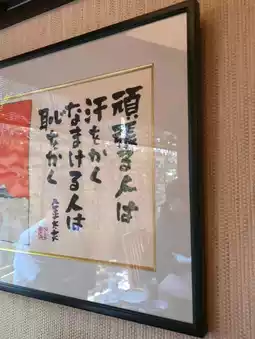 頑張る人は
汗をかく
なまける人は
恥をかく